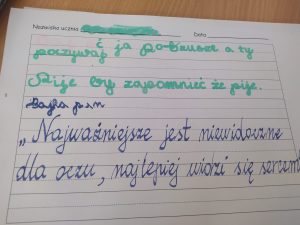 Nazwisko ucznia Data
poczywaj ć, ja po-bruszę a ty
Piję by zapomnieć że piję.
Bajka pan
„Najważniejsze jest niewidoczne
dla oczu, najlepiej widzi się sercem